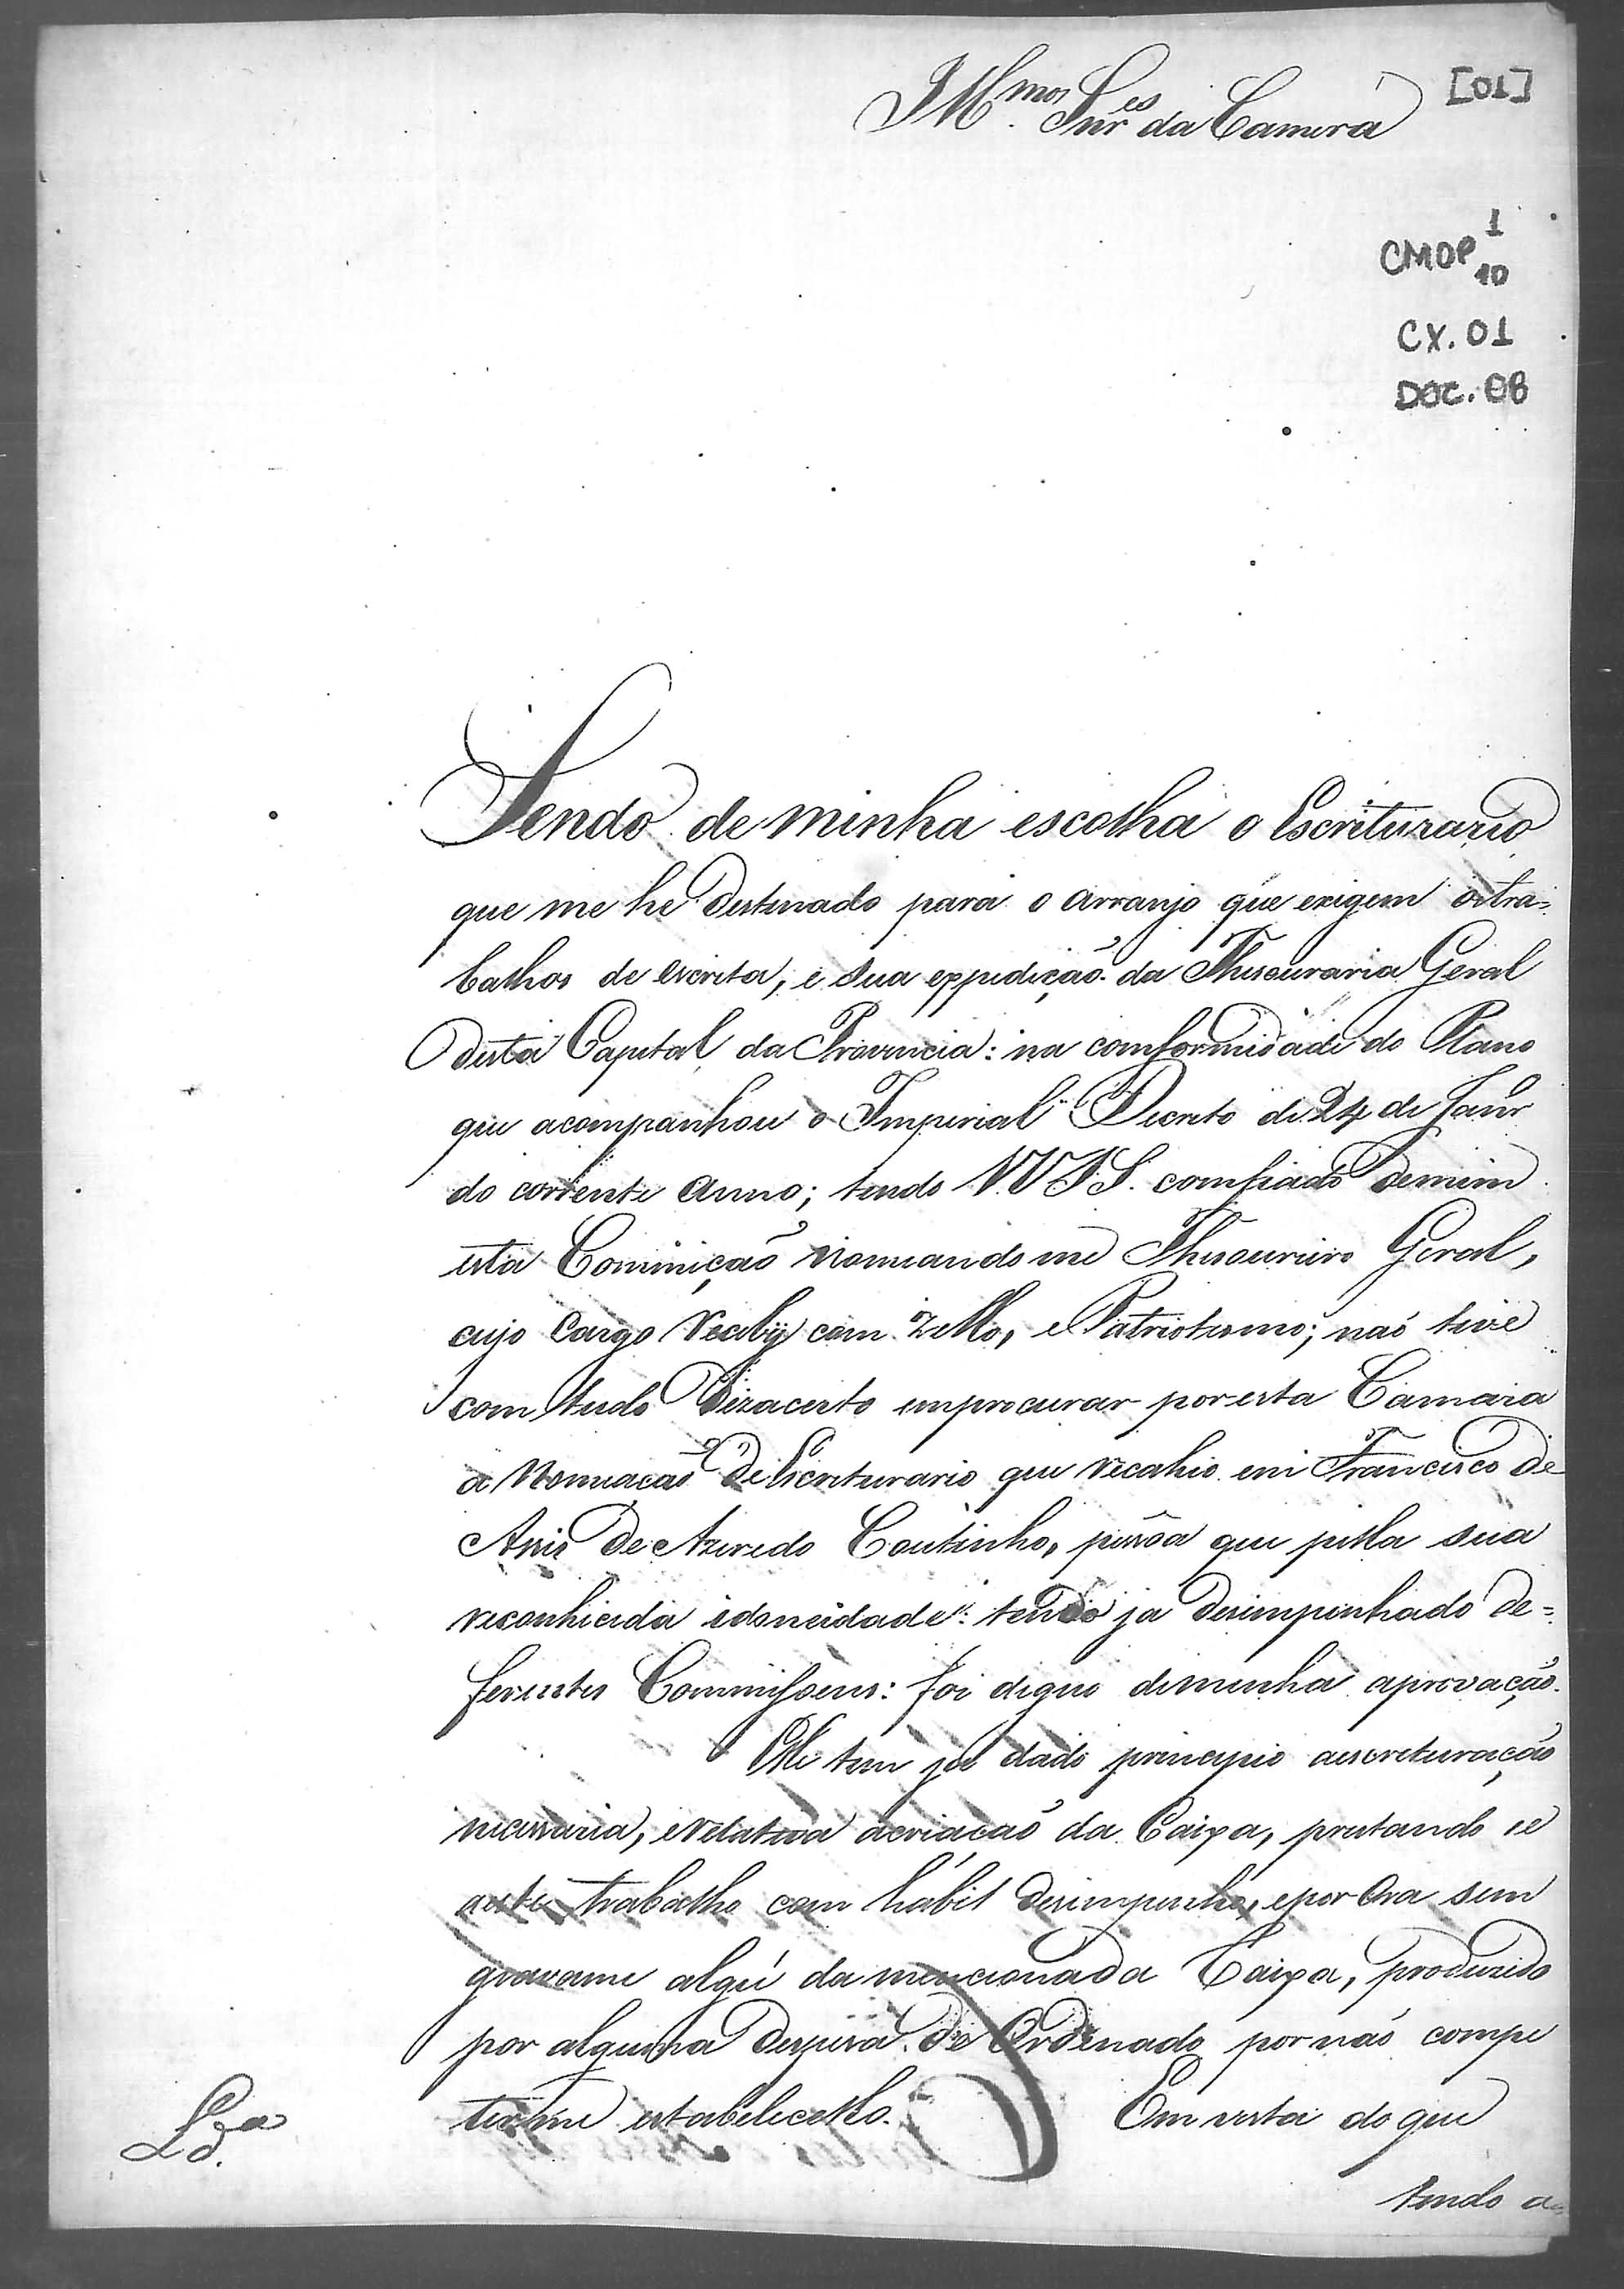 Illmos. Snres da Camera
[01]
CMOP 1
10
CX. 01
DOC. 08
Sendo de minha escolha o Escriturario
que me he destinado para o arranjo que exigem ostra=
balhos de escrita, e sua expedição da Thesouraria Geral
desta Capital da Provincia: na comformidade do Plano
que acompanhou o Imperial Decreto de 24 de Janr
do corrente anno; tendo V.V.S.S. comfiado demim
esta Comiução nomeandome Thesoureiro Geral,
cujo Cargo Recebÿ com zello, e Patriotismo; naõ tive
com tudo Dezacerto emprocurar por esta Camara
a Nomeacaõ de Escriturario que recahio em Francisco de
Assis de Azevedo Coutinho, pessôa que pella sua
reconhicida idoneidade: tendo ja desimpenhado de=
ferentes Commissoens: foi digno deminha aprovação.
Elle tem ja dado principio aescreturação
nicessaria, erelativa acriacaõ da Caixa, prestando se
aeste trabalho com habil desimpenho, epor Ora sem
gravame algũ da mencionada Caixa, produzido
por alguma despesa de Ordenado por naõ compe
tirme estabelecello. Em vista do que
Lda.
tendo a